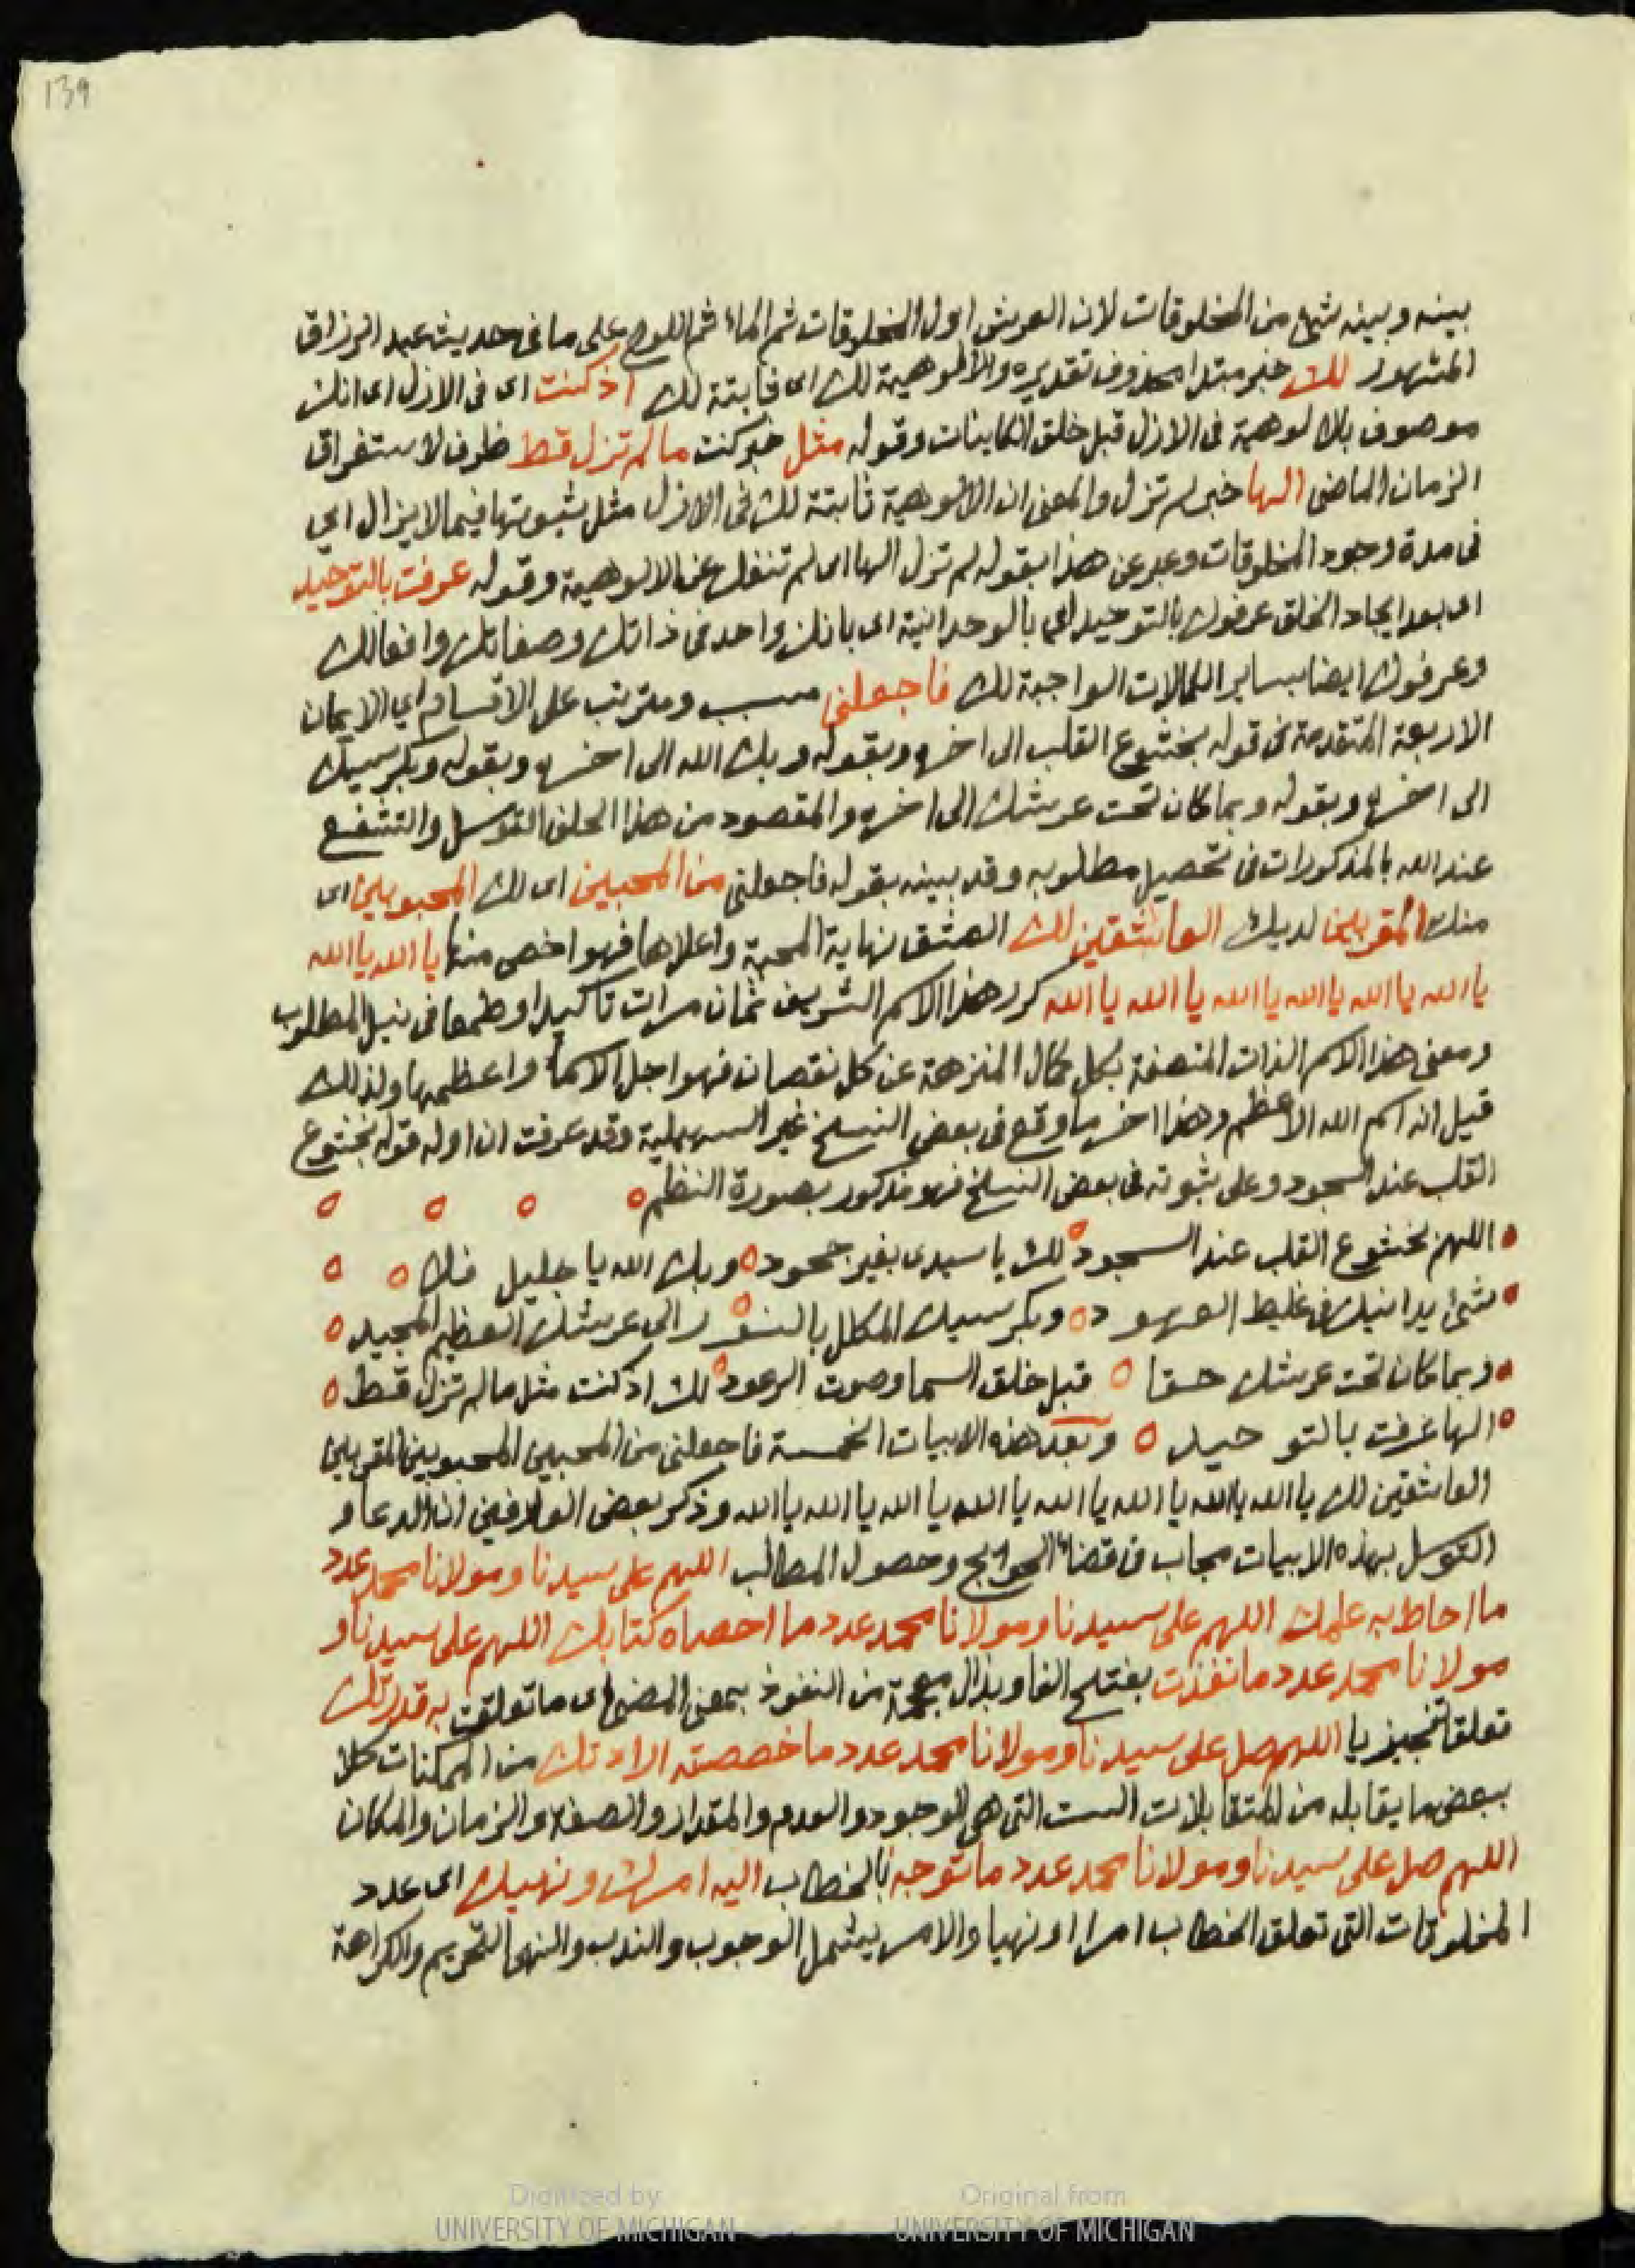 139
بينه وبينه شئ من المخلوقات لان العرش اول المخلوقات ثم الماء ثم اللوح على ما فى حديث عبد الرزاق
المشهور لك خبر مبتدا محذوف تقديره والالوهية لك اى ثابتة لك اذ كنت اى فى الازل اى انك
موصوف بالالوهية فى الازل قبل خلق الكاينات وقوله مثل خبر كنت ما لم تزل قط ظرف لاستغراق
الزمان الماضى الها خبر لم تزل والمعنى ان الالوهية ثابتة لك فى الازل مثل ثبوتها فيما لا يزال اى
فى مدة وجود المخلوقات وعبر عن هذا بقوله لم تزل الها اى لم تنفك عن الالوهية وقوله عرفت بالتوحيد
اى بعد ايجاد الخلق عرفوك بالتوحيد اى بالوحدانية اى بانك واحد فى ذاتك وصفاتك وافعالك
وعرفوك ايضا بساير الكمالات الواجبة لك فاجعلنى مسبب ومترتب على الاقسام اى الايمان
الاربعة المتقدمة فى قوله بخشوع القلب الى اخره وبقوله وبك الله الى اخره وبقوله وبكرسيك
الى اخره وبقوله وبما كان تحت عرشك الى اخره والمقصود من هذا الحلف التوسل والتشفع
عند الله بالمذكورات فى تحصيل مطلوبه وقد بينه بقوله فاجعلنى من المحبين اى لك المحبوبين اى
منك المقربين لديك العاشقين لك العشق نهاية المحبة واعلاها فهو اخص منها يا الله يا الله
يا الله يا الله يا الله يا الله يا الله يا الله كرر هذا الاسم الشريف ثمان مرات تاكيدا وطمعا فى نيل المطلوب
ومعنى هذا الاسم الذات المتصفة بكل كمال المنزهة عن كل نقصان فهو اجل الاسماء واعظمها ولذلك
قيل انه اسم الله الاعظم وهذا اخر ما وقع فى بعض النسخ غير السهيلية وقد عرفت ان اوله قوله بخشوع
القلب عند السجود وعلى ثبوته فى بعض النسخ فهو مذكور بصورة النظم
اللهم بخشوع القلب عند السجود لك يا سيدى بغير جحود وبك الله يا جليل فلا
شئ يدانيك فى غليظ العهود وبكرسيك المكلل بالنور الى عرشك العظيم المجيد
وبما كان تحت عرشك حقا قبل خلق السما وصوت الرعود لك اذ كنت مثل ما لم تزل قط
الها عرفت بالتوحيد وبعد هذه الابيات الخمسة فاجعلنى من المحبين المحبوبين المقربين
العاشقين لك يا الله يا الله يا الله يا الله يا الله يا الله يا الله يا الله وذكر بعض العارفين ان الدعا و
التوسل بهذه الابيات مجاب فى قضاء الحوائج وحصول المطالب اللهم على سيدنا ومولانا محمد عدد
ما احاط به علمك اللهم على سيدنا ومولانا محمد عدد ما احصاه كتابك اللهم على سيدنا و
مولانا محمد عدد ما نفذت بفتح الفا وبذال معجمة من النفوذ بمعنى المضى اى ما تعلقت به قدرتك
تعلقا تنجيزيا اللهم صل على سيدنا ومولانا محمد عدد ما خصصته ارادتك من الممكنات كلا
ببعض ما يقابله من المتقابلات الست التى هى الوجود والعدم والمقدار والصفة والزمان والمكان
اللهم صل على سيدنا ومولانا محمد عدد ما توجه بالخطاب اليه امرك ونهيك اى عدد
المخلوقات التى تعلق الخطاب امرا او نهيا والامر يشمل الوجوب والندب والنهى التحريم والكراهة
Digitized by
UNIVERSITY OF MICHIGAN
Original from
UNIVERSITY OF MICHIGAN